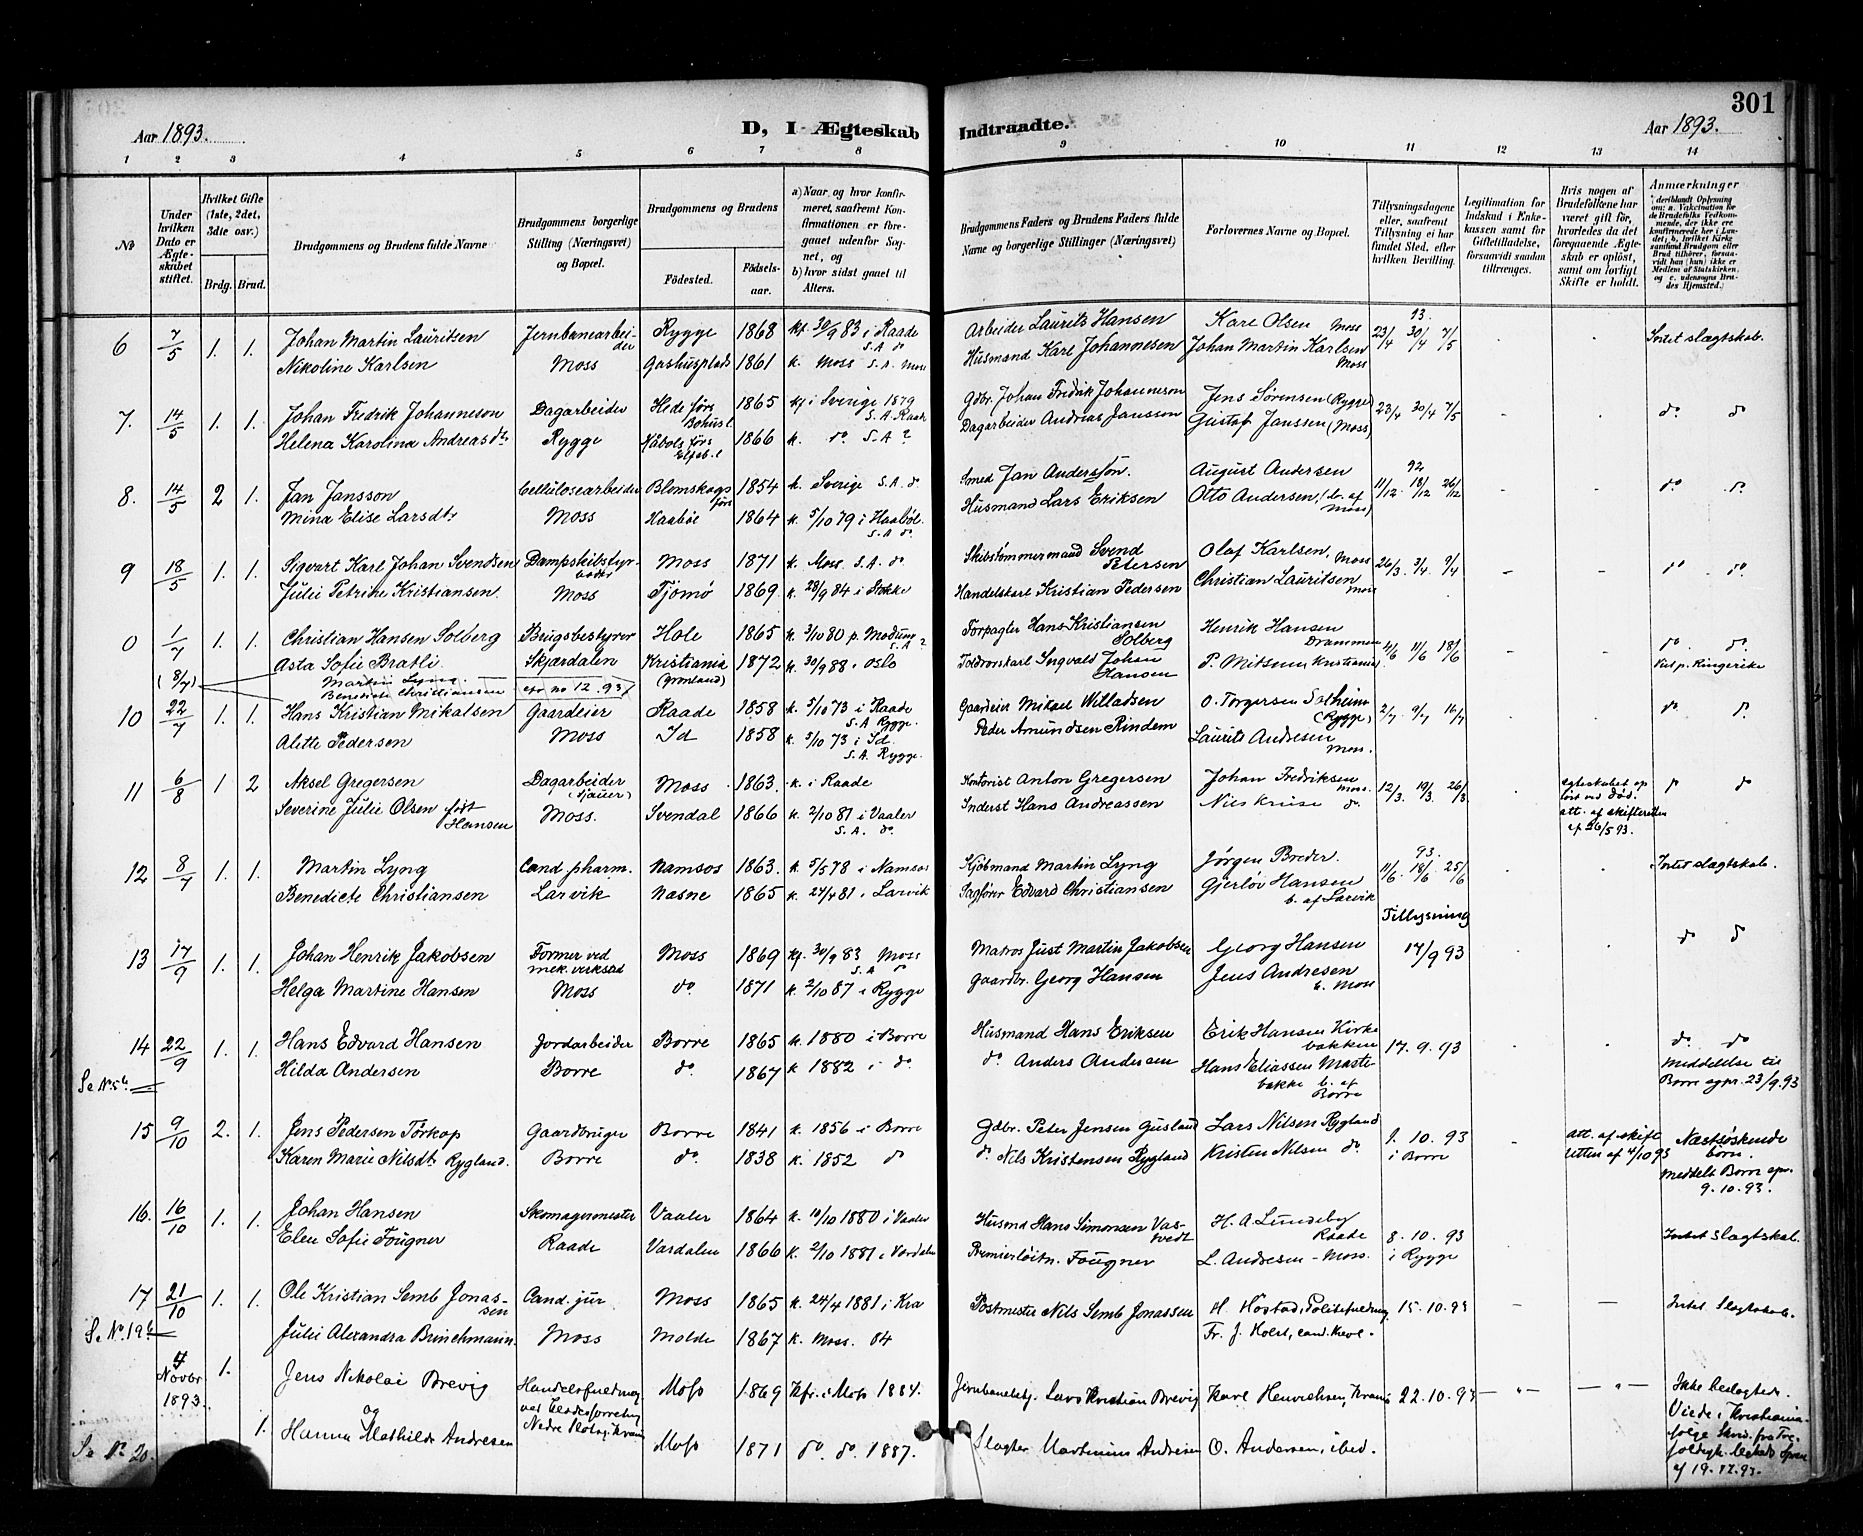 301
Aar 1893.
D, I Ægteskab
Indtraadte.
Aar 1893.
1 2 3 4 5 6 7 8 9 10 11 12 13 14
No
Under hvilken Dato er Ægteskabet stiftet.
Hvilket Gifte (1ste, 2det, 3dte osv.)
Brdg. Brud.
Brudgommens og Brudens fulde Navne
Brudgommens borgerlige Stilling (Næringsvei) og Bopæl.
Brudgommens og Brudens
Fødested.
Fødselsaar.
a) Naar og hvor konfirmeret, saafremt Konfirmationen er foregaaet udenfor Sognet, og
b) hvor sidst gaaet til Alters.
Brudgommens Faders og Brudens Faders fulde Navne og borgerlige Stillinger (Næringsvei)
Forlovernes Navne og Bopæl.
Tillysningsdagene eller, saafremt Tillysning ei har fundet Sted, efter hvilken Bevilling.
Legitimation for Indskud i Enkekassen samt for Giftetilladelse, forsaavidt saadan tiltrænges.
Hvis nogen af Brudefolkene har været gift før, hvorledes da det foregaaende Ægteskab er opløst, samt om lovligt Skifte er holdt.
Anmærkninger
6 7/5 1. 1. Johan Martin Lauritsen Jernbanearbeider Rygge 1868 kf. 30/9 83 i Raade S.A. do Arbeider Laurits Hansen Kare Olsen Moss 93. 23/4 30/4 7/5 Intet slægtskab.
Nikoline Karlsen Moss Gashusplads 1861 k. Moss S.A. Moss Husmand Karl Johannesen Johan Martin Karlsen Moss
7. 14/5 1. 1. Johan Fredrik Johanneson Dagarbeider Hedeførs Bohusl. 1865 kf i Sverige 1879 S.A. Raade Gdbr. Johan Fredrik Johanneson Jens Sørensen (Rygge) 23/4 30/4 7/5 do do
Helena Karolina Andreasdtr Rygge 1866 k. do S.A ? Dagarbeider Andreas Jansson Gustaf Janssen (Moss)
8. 14/5 2 1. Jan Jansson Cellulosearbeider Blomskogs førs 1854 k. Sverige S.A. do Smed Jan Anderssön. August Andersen 92 11/12 18/12 26/12 do do
Mina Elise Larsdtr Moss Haabøl 1864 k. 5/10 79 i Haabøl. S.A. do Husmand Lars Eriksen Otto Andersen, (b. af Moss)
9 18/5 1. 1. Sigvart Karl Johan Svendsen Dampskibsfyrbøder Moss 1871 k. Moss S.A. do Skibstømmermand Svend Petersen Olaf Karlsen, Moss 26/3 3/4 9/4 do do
Julie Petrine Kristiansen. Moss Tjømø 1869 k. 28/9 84 i Stokke Handelskarl Kristian Pedersen Christian Lauritsen Moss
0 1/7 1. 1. Christian Hansen Solberg Brugsbestyrer Hole 1865 k. 3/10 80 p. Modum S.A ? Forpagter Hans Kristiansen Solberg Henrik Hansen Drammen 4/6 11/6 18/6 do do
Asta Sofie Bratli Skjærdalen Kristiania (Grønland) 1872 k. 30/9 88 i Oslo Toldrorskarl Ingvald Johan Hansen Kristiania Ringerike
(8/7) Martin Lyng. Benedicte Christiansen no 12. 93
10 22/7 1. 1. Hans Kristian Mikalsen Gaardeier Raade 1858 k. 5/10 73 i Raade S.A. Rygge. Gaardeier Mikael Willadsen O. Torgersen Solheim (Rygge) 2/7 9/7 16/7 do do
Alette Pedersen Moss Id 1858 k. 5/10 73 i Id. S.A. Rygge. Peder Amundsen Rindem Laurits Andresen Moss.
11 6/8 1 2 Aksel Gregersen Dagarbeider (sjauer) Moss 1863. k. i Raade Kontorist Anton Gregersen Johan Fredriksen Moss. 12/3. 19/3 26/3 egteskabet opløst ved død. att. af skifteretten af 26/5 93.
Severine Julie Olsen født Hansen Moss. Svendal 1866 k. 2/10 81 i Vaaler S.A. do. Inderst Hans Andreassen Nils Kruse do.
12 8/7 1. 1. Martin Lyng Cand. pharm. Namsos 1863. k. 5/5 78 i Namsos Kjøbmand Martin Lyng Jørgen Breder. 93. 11/6. 18/6 25/6 Intet slægtskab.
Benedicte Christiansen Larvik Nasne 1865 k. 24/4 81 i Larvik Sagfører Edvard Christiansen Gjerløv Hansen b. af Larvik
Tillysning
13 17/9 1. 1. Johan Henrik Jakobsen Former ved mek. verksted Moss 1869 kf. 30/9 83 Moss S.A do Matros Just Martin Jakobsen Georg Hansen 17/9 93 do do
Helga Martine Hansen Moss do. 1871 k. 2/10 87 i Rygge Gaardbr. Georg Hansen Jens Andresen b. Moss
14 22/9 1. 1. Hans Edvard Hansen Jordarbeider Borre 1865 k. 1880 i Borre Husmand Hans Eriksen Erik Hansen Kirkebakken 17. 9. 93 do do
Hilda Andersen Borre do. 1867 k 1882 i do do Anders Andersen Hans Eliassen b. af Borre Meddelelse til Borre 23/9. 93
15 9/10 2. 1. Jens Pedersen Torkop Gaardbruger Borre 1841 k. 1856 i Borre Gdbr. Peter Jensen Gusland Lars Nilsen Rygland 1. 10. 93 i Borre att. af skifteretten af 4/10 93 Næstsøskendebørn.
Karen Marie Nilsdtr Rygland. Borre do. 1838 k. 1852 do do. Nils Kristensen Rygland Kristen Nilsen do Meddelt Borre 9. 10. 93.
16. 16/10 1. 1. Johan Hansen Skomagermester Vaaler 1864 k. 10/10 1880 i Vaaler Husmd Hans Simonsen H. A. Lundeby Raade 8. 10. 93 i Rygge Intet slægtskab.
Elen Sofie Fougner Raade Værdalen 1866 k. 2/10 1881 i Værdalen Premierløitn. Fougner L. Andresen - Moss.
17 21/10 1. 1. Ole Kristian Semb Jonassen Cand. jur Moss 1865 k. 24/4 1881 i Kra Postmester Nils Semb Jonassen H. Høstad, Politifuldmæg. 15. 10. 93 Intet Slægtskab.
Se No. 19 Julie Alexandra Brinchmann. Moss Molde 1867 k. Moss. 84 Fr. J. Holst,
4 Novbr 1893. 1. Jens Nikolai Brevig Handelsfuldmæg Moss 1869 Kfr. i Moss 1884. Lars Kristian Brevig Karl Henrichsen, Krania 22. 10. 93 Ikke beslægtede.
og
1. Hanna Mathilde Andresen Moss 1871 do do 1887. Slagter Martinius Andresen O. Andersen, ibid. Viede i Kristiania
Se No. 20. 19. 12. 93.